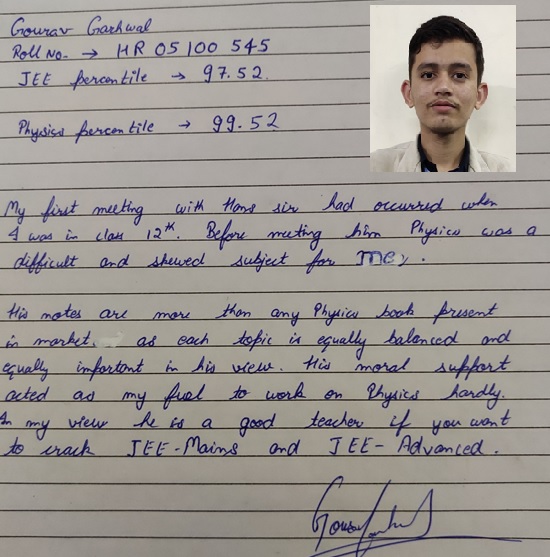 Gourav Garhwal
Roll No. → HR 05100 545
JEE percentile → 97.52.
Physics percentile → 99.52
My first meeting with Hans sir had occurred when
I was in class 12th. Before meeting him Physics was a
difficult and skewed subject for me.
His notes are more than any Physics book present
in market. as each topic is equally balanced and
equally important in his view. His moral support
acted as my fuel to work on Physics hardly.
In my view he is a good teacher if you want
to crack JEE-Mains and JEE-Advanced.